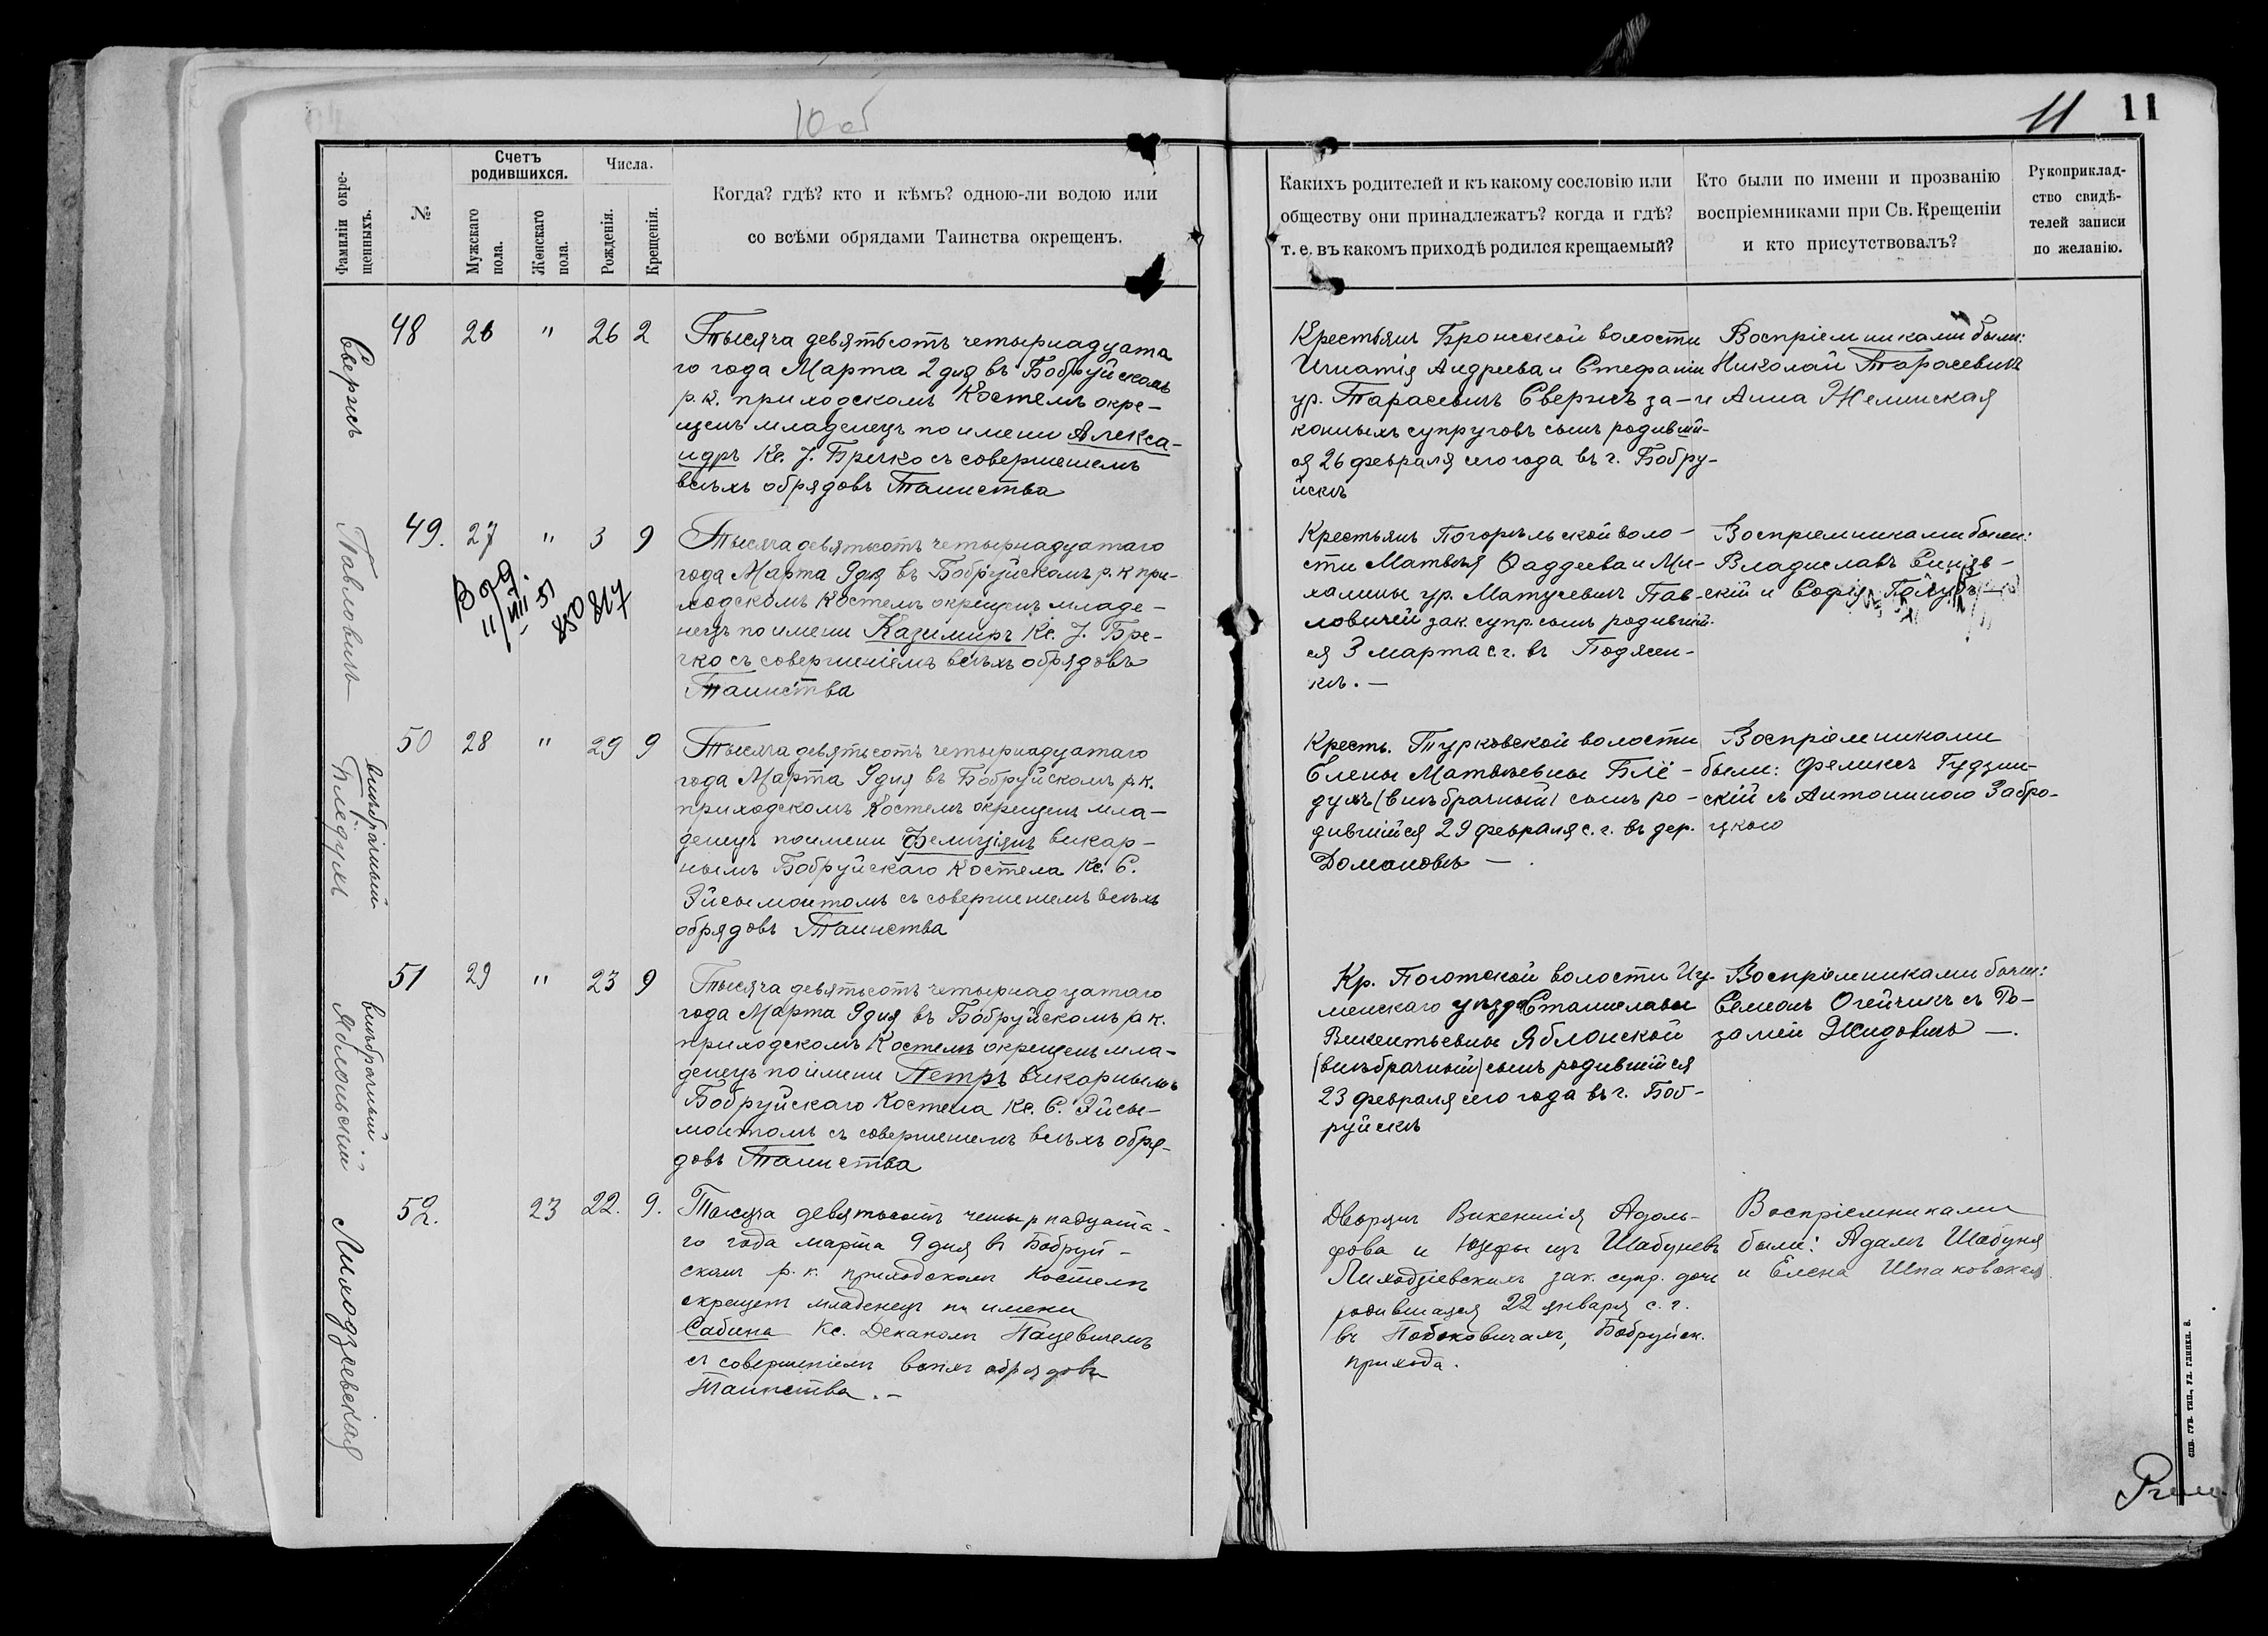 10 об
11 11
Фамиліи окре-
щенныхъ.
№
Счетъ
родившихся.
Мужскаго
пола.
Женскаго
пола.
Числа.
Рожденія.
Крещенія.
Когда? гдѣ? кто и кѣмъ? одною-ли водою или
со всѣми обрядами Таинства окрещенъ.
Какихъ родителей и къ какому сословію или
обществу они принадлежатъ? когда и гдѣ?
т. е. въ какомъ приходѣ родился крещаемый?
Кто были по имени и прозванію
воспріемниками при Св. Крещеніи
и кто присутствовалъ?
Рукоприклад-
ство свидѣ-
телей записи
по желанію.
Свержъ
48 26 " 26 2
Тысяча девятьсотъ четырнадцата
го года Марта 2 дня въ Бобруйскомъ
р. к. приходскомъ Костелѣ окре-
щенъ младенецъ по имени Алекса-
ндръ Кс. J. Бречко съ совершеніемъ
всѣхъ обрядовъ Таинства
Крестьянъ Брожской волости
Игнатія Андреева и Стефаніи
ур. Тарасевичъ Свержъ за-
конныхъ супруговъ сынъ родивший-
ся 26 февраля сего года въ г. Бобру-
йскѣ
Воспріемниками были:
Николай Тарасевичъ
и Анна Жеминская
Павловичъ
49. 27 " 3 9
11/VIII 51
Тысяча девятьсотъ четырнадцатаго
года Марта 9 дня въ Бобруйскомъ р. к при-
ходскомъ Костелѣ окрещенъ младе-
нецъ по имени Казимиръ Кс. J. Бре-
чко съ совершеніемъ всѣхъ обрядовъ
Таинства
Крестьянъ Погорѣльской воло-
сти Матвѣя Фаддеева и Ми-
халины ур. Матусевичъ Пав-
ловичей зак. супр. сынъ родивший-
ся 3 марта с. г. въ Подясен-
кѣ. —
Воспріемниками были:
Владиславъ Синяв-
скій и Софія
Блёдухъ
внѣбрачный
50 28 " 29 9
Тысяча девятьсотъ четырнадцатаго
года Марта 9 дня въ Бобруйскомъ р. к.
приходскомъ Костелѣ окрещенъ мла-
денецъ по имени Фелиціянъ викар-
нымъ Бобруйскаго Костела Кс. С.
Эйсымонтомъ съ совершеніемъ всѣхъ
обрядовъ Таинства
Кресть. Турковской волости
Елены Матвѣевны Блё-
духъ (внѣбрачный) сынъ ро-
дившійся 29 февраля с. г. въ дер.
Домановѣ —
Воспріемниками
были: Феликсъ Гудзин-
скій съ Антониною Забро-
цкою
Яблонскій
внѣбрачный
51 29 " 23 9
Тысяча девятьсотъ четырнадцатаго
года Марта 9 дня въ Бобруйскомъ р. к.
приходскомъ Костелѣ окрещенъ мла-
денецъ по имени Петръ викарнымъ
Бобруйскаго Костела Кс. С. Эйсы-
монтомъ съ совершеніемъ всѣхъ обря-
довъ Таинства
Кр. Поготской волости Игу-
менскаго уѣзда Станиславы
Викентьевны Яблонской
(внѣбрачный) сынъ родившійся
23 февраля сего года въ г. Боб-
руйскѣ
Воспріемниками были:
Семенъ Огейчикъ съ Ро-
заліей Жидовичъ —.
Лиходзіевская
52. 23 22. 9.
Тысяча девятьсотъ четырнадцата-
го года марта 9 дня въ Бобруй-
скомъ р. к. приходскомъ Костелѣ
окрещенъ младенецъ по имени
Сабина Кс. Деканомъ Пацевичемъ
съ совершеніемъ всѣхъ обрядовъ
Таинства. —
Дворянъ Викентія Адоль-
фова и Юзефы изъ Шабуневъ
Лиходзіевскихъ зак. супр. дочь
родившаяся 22 января с. г.
въ Побоковичахъ, Бобруйск.
прихода.
Воспріемниками
были: Адамъ Шабуня
и Елена Шпаковская
СПВ. ГУБ. ТИП., УЛ. ГЛИНКИ, 8.